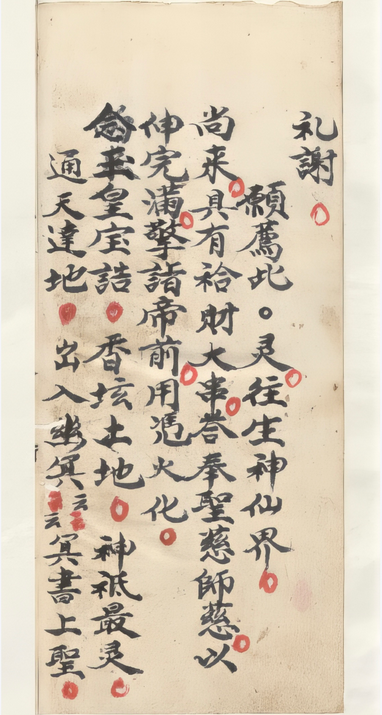 礼謝
願薦此。灵往生神仙界
尚来具有袷財大串荅奉聖慈師慈以
伸完滿擎詣帝前用憑火化
念玉皇宝誥香坛土地神祇最灵
通天達地出入幽冥云云冥書上聖